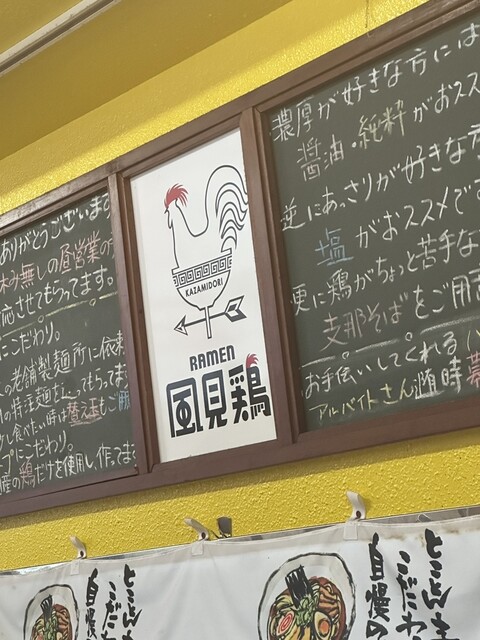 ありがとうございます
休み無しの昼営業の
応させてもらってます。
にこだわり。
の老舗製麺所に依頼
の特注麺を
食べたい時は
プにこだわり。
産の鶏だけを使用し作ってます
KAZAMIDORI
RAMEN
風見鶏
濃厚が好きな方には
醤油・純粋がおスス
逆にあっさりが好きな方
塩がおススメです
更に鶏がちょっと苦手な
支那そばをご用
お手伝いしてくれる
アルバイトさん随時募
とことん
こだわ
自慢
とことん
こだわ
自慢の